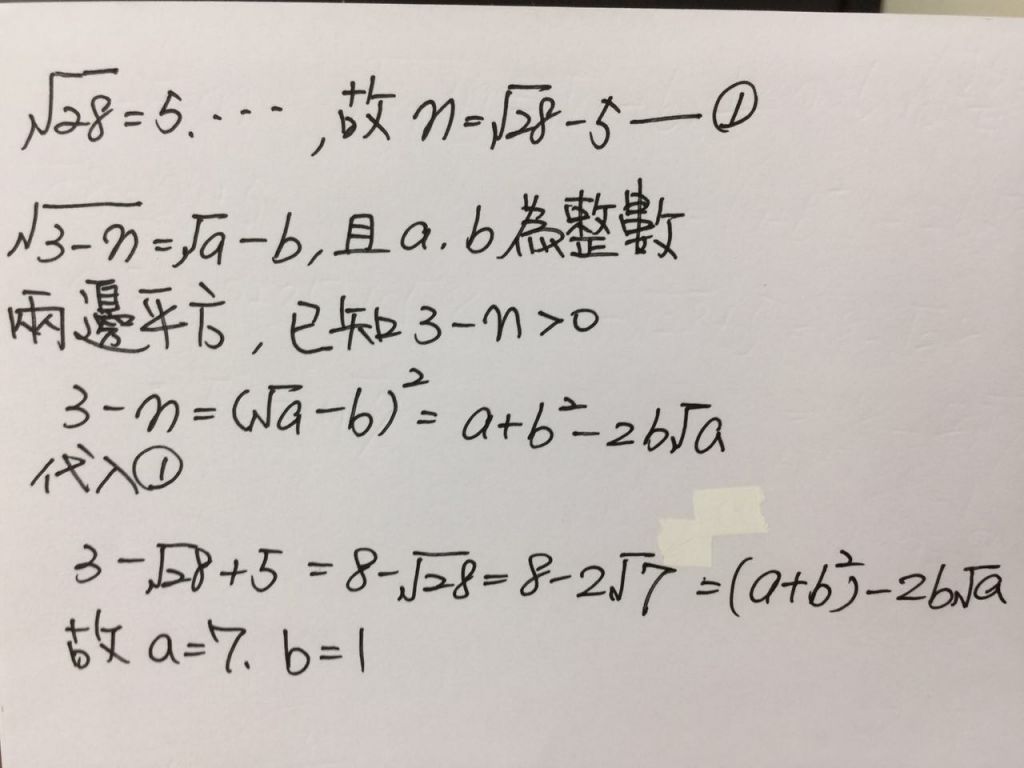 √28=5.…,故 n=√28-5—①
√3-n=√a-b,且a.b為整數
兩邊平方,已知3-n>0
3-n=(√a-b)²=a+b²-2b√a
代入①
3-√28+5=8-√28=8-2√7=(a+b²)-2b√a
故 a=7. b=1